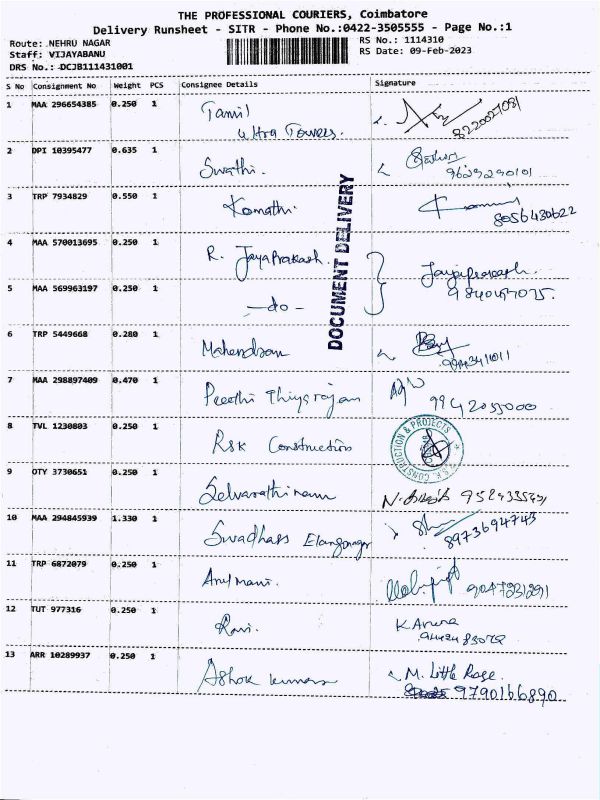 THE PROFESSIONAL COURIERS, Coimbatore
Delivery Runsheet - SITR - Phone No.:0422-3505555 - Page No.:1
Route: NEHRU NAGAR
RS No.: 1114310
Staff: VIJAYABANU
RS Date: 09-Feb-2023
DRS No.: DCJB111431001
S No Consignment No Weight PCS Consignee Details Signature
1 MAA 296654385 0.250 1 Tamil
Ultra Towers. 8220027081
2 DPI 10395477 0.635 1 Swathi. 9629290101
3 TRP 7934829 0.550 1 Komathi. 8056430622
4 MAA 570013695 0.250 1 R. JayaPrakash. Jayaprakash.
5 MAA 569963197 0.250 1 -do-
6 TRP 5449668 0.280 1 Mahendran
7 MAA 298897409 0.470 1 Preethi Thiyagrajan 9942055000
8 TVL 1230803 0.250 1 RSK Construction
R.S.K. CONSTRUCTION & PROJECTS
9 OTY 3730651 0.250 1 Selvarathinam
10 MAA 294845939 1.330 1 Swadhas Elangonagar 8973694743
11 TRP 6872079 0.250 1 Arulmani.
12 TUT 977316 0.250 1 Ravi. K Aruna
13 ARR 10289937 0.250 1 Ashok kumar M. Little Rose.
9790166890
DOCUMENT DELIVERY